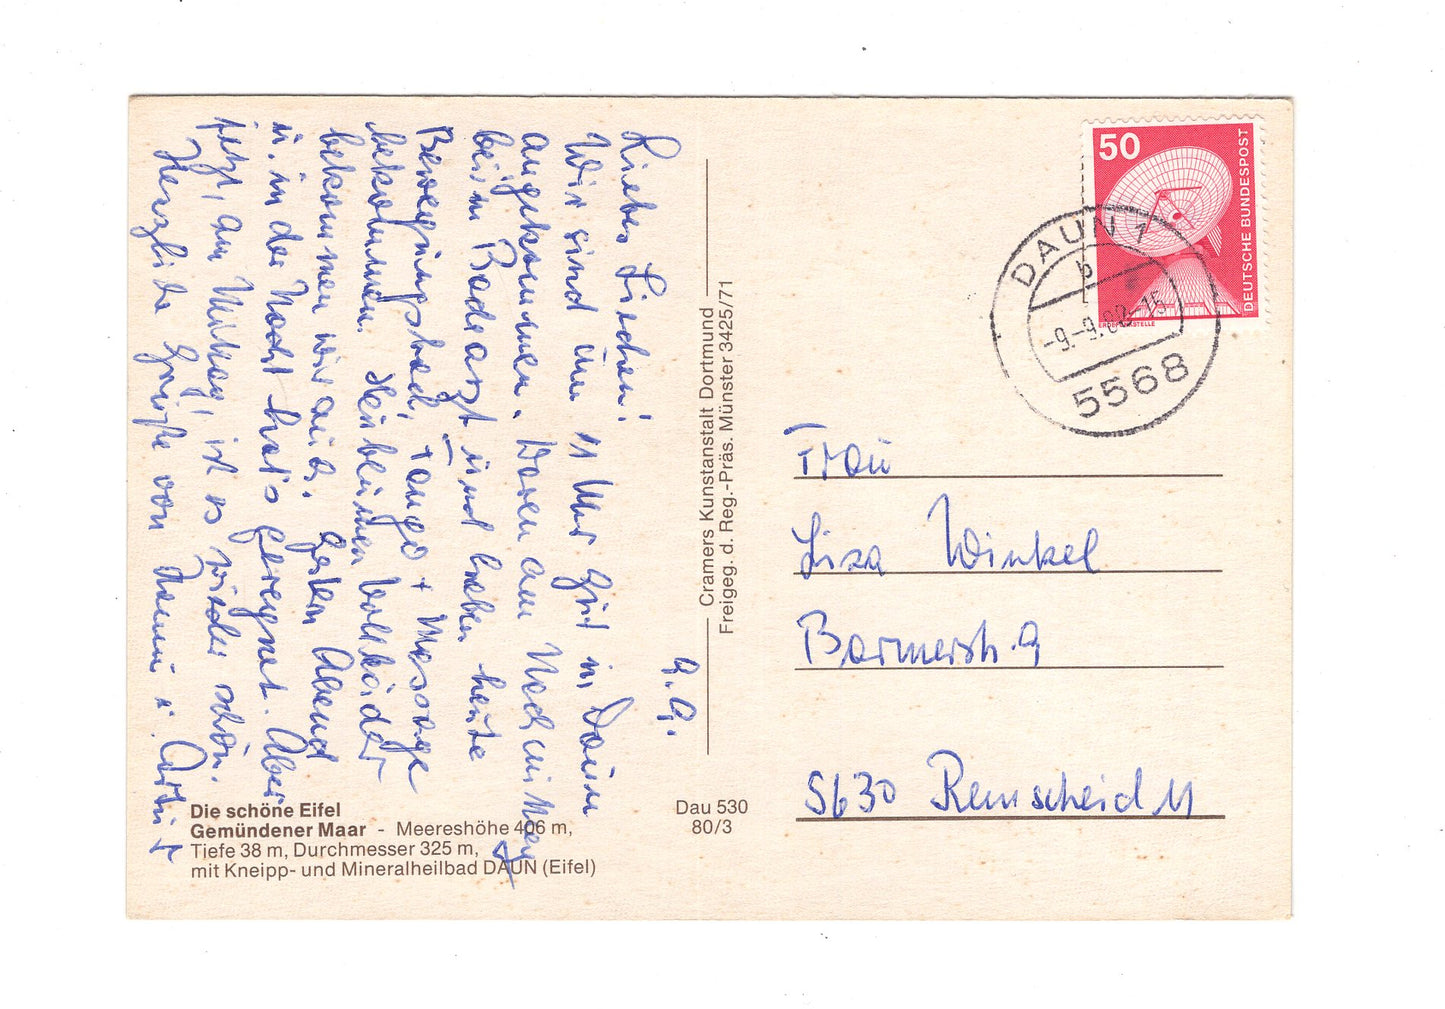 9.9.
Liebes Lischen!
Wir sind um 11 Uhr gut in Daun
angekommen. Waren am Nachmittag
beim Badearzt und haben heute
Bewegungsbad, Fango + Massage
bekommen. Heublumen Vollbäder
bekommen wir auch. Gestern Abend
u. in der Nacht hat's geregnet. Aber
jetzt, am Mittag, ist es wieder schön.
Herzliche Grüße von
Die schöne Eifel
Gemündener Maar - Meereshöhe 406 m,
Tiefe 38 m, Durchmesser 325 m,
mit Kneipp- und Mineralheilbad DAUN (Eifel)
Dau 530
80/3
Cramers Kunstanstalt Dortmund
Freigeg. d. Reg.-Präs. Münster 3425/71
50
DEUTSCHE BUNDESPOST
ERDEFUNKSTELLE
DAUN 1
b
-9.-9.80-15
5568
Frau
Lisa Winkel
Barmerstr. 9
5630 Remscheid 11